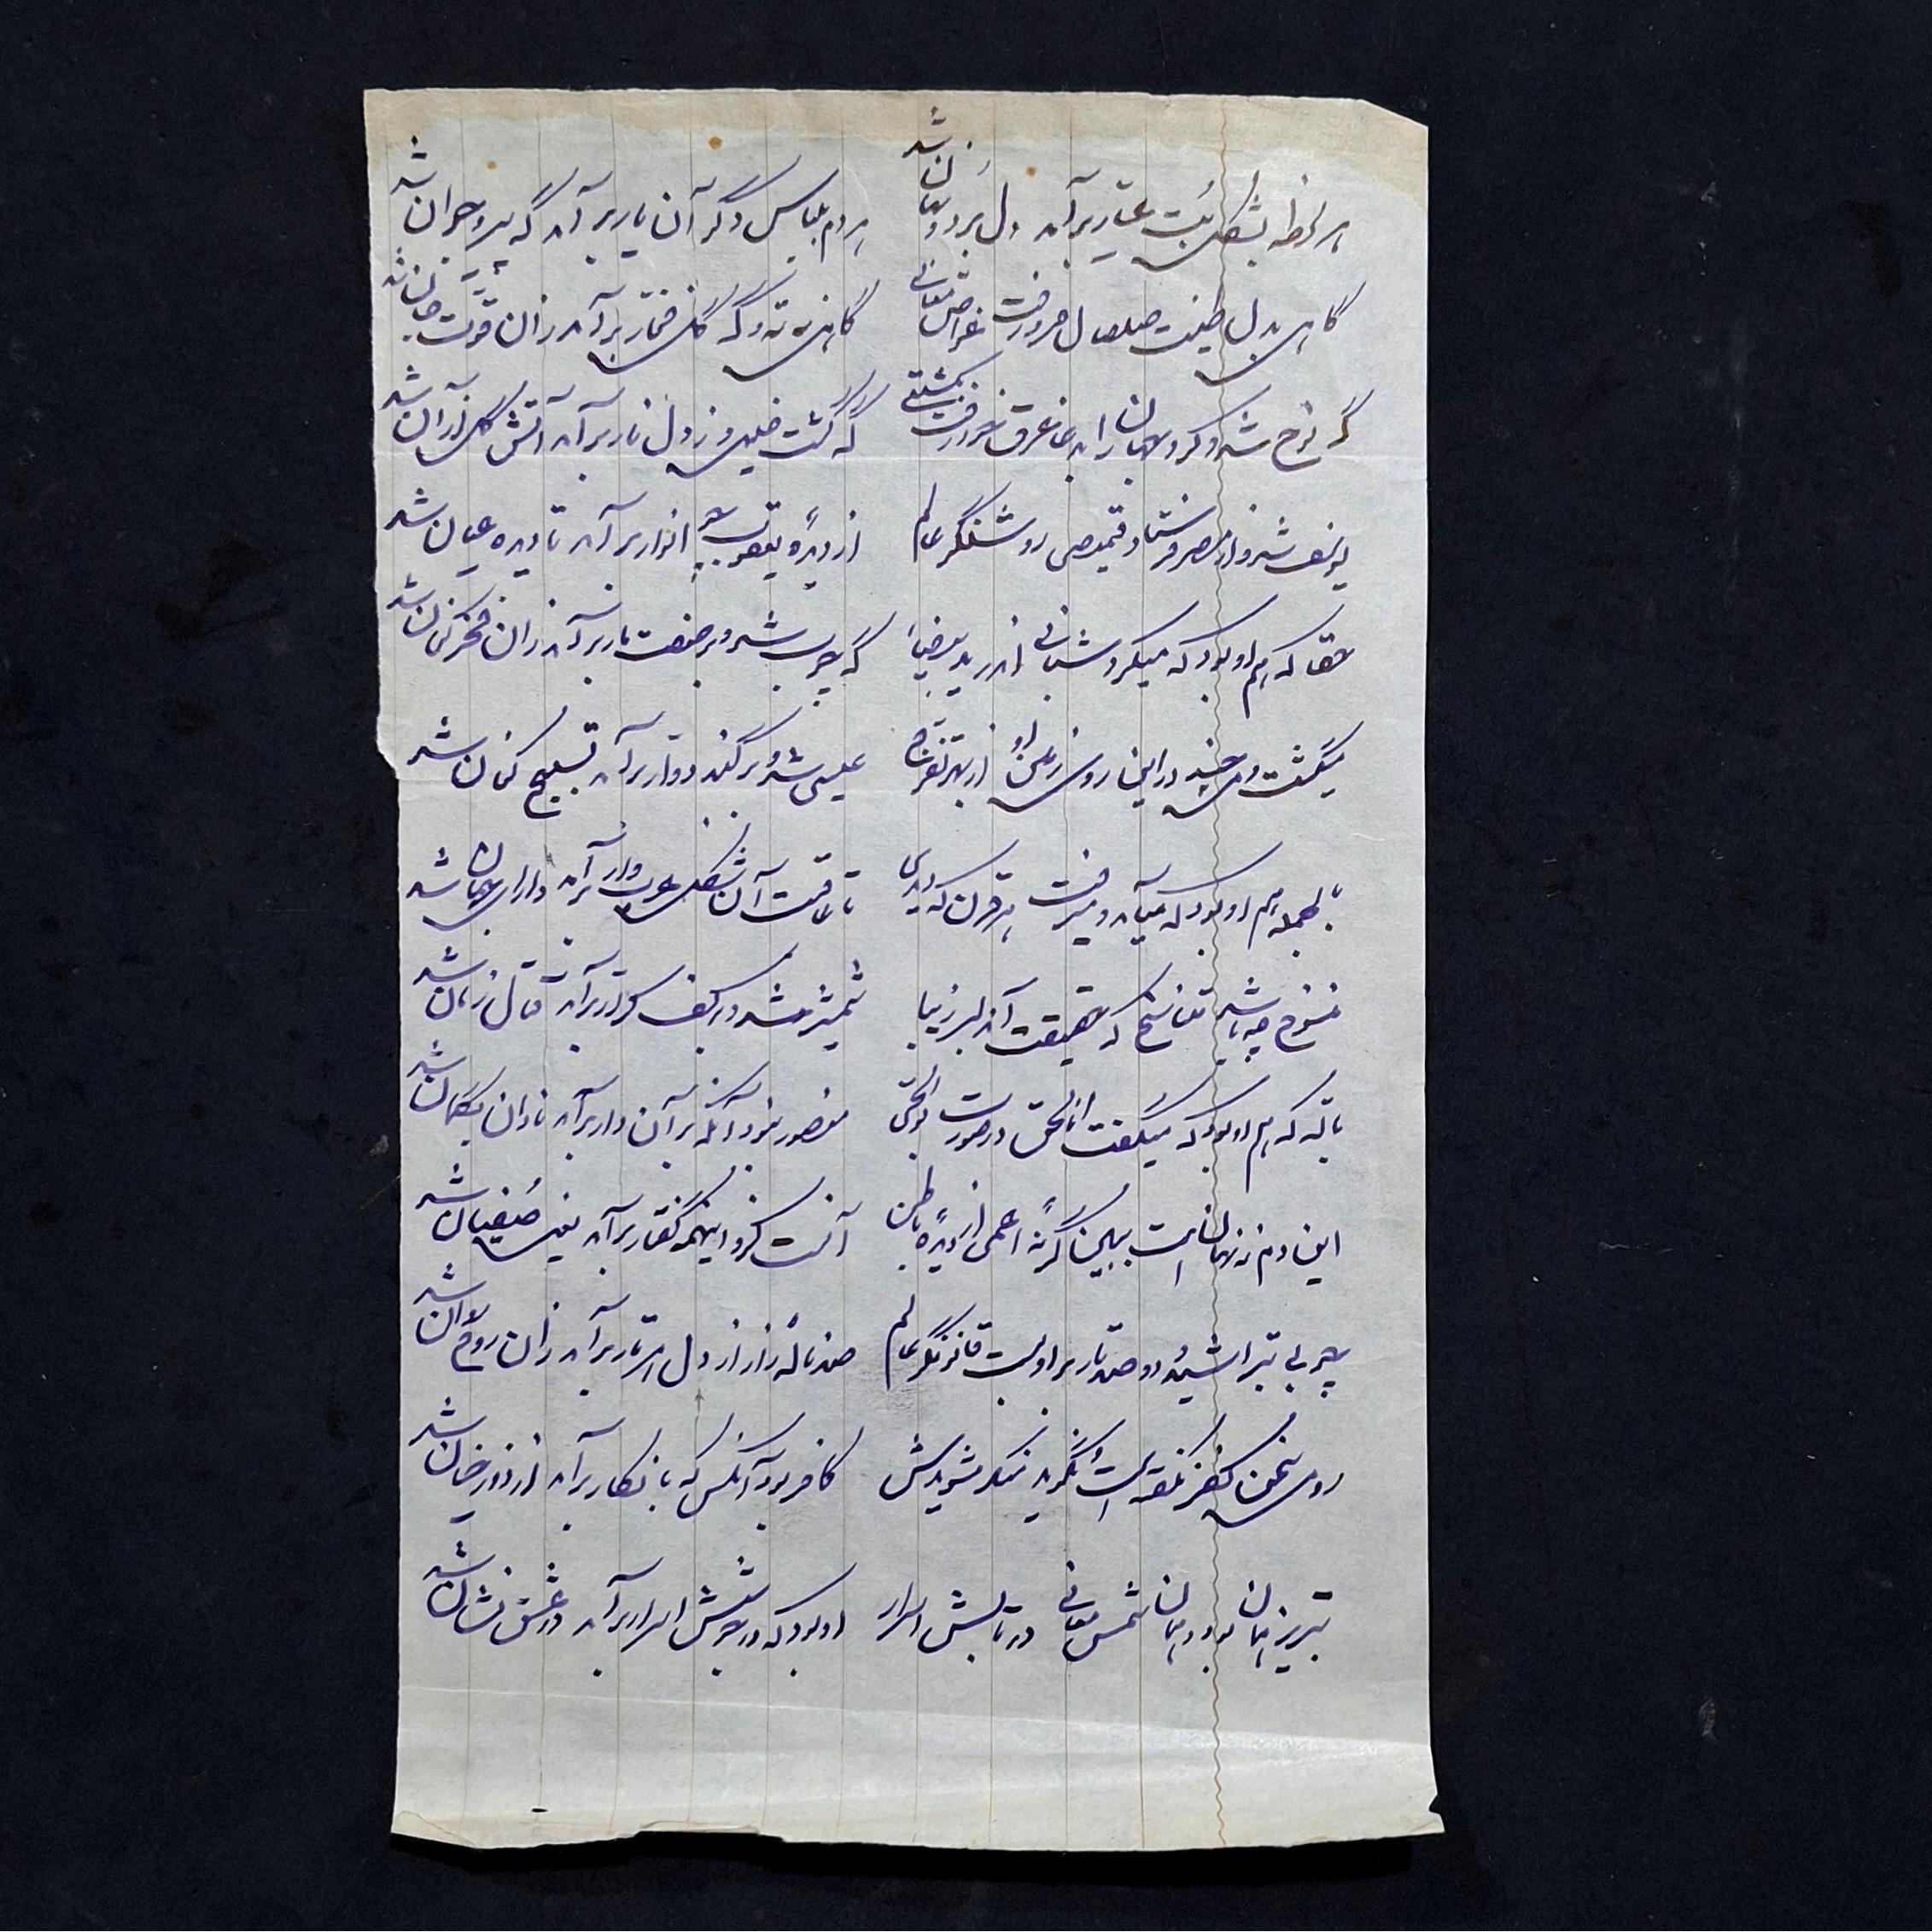 هر لحظه بشکلی بُت عیار برآمد دل برد و نهان شد هر دم بلباس دگر آن یار برآمد گه پیر و جوان شد
گاهی بدل طینت صلصال فرو رفت غواص معانی گاهی ز ته گل فخار برآمد زان قوت جان شد
گه نوح شد و کرد جهان را بدعا غرق خود رفت بکشتی گه گشت خلیل و ز دل نار برآمد آتش گل از آن شد
یوسف شد و از مصر فرستاد قمیصی روشنگر عالم از دیدهٔ یعقوب چو انوار برآمد تا دیده عیان شد
حقا که هم او بود که میکرد شبانی اندر ید بیضا گه چوب شد و بر صفت مار برآمد زان فخر کیان شد
میگشت دمی چند در این روی زمین او از بهر تفرج عیسی شد و بر گنبد دوار برآمد تسبیح کنان شد
بالجمله هم او بود که میآمد و میرفت هر قرن که دیدی تا عاقبت آن شکل عرب وار برآمد دارای جهان شد
منسوخ چه باشد تناسخ که حقیقت آن دلبر زیبا شمشیر شد و در کف کرار برآمد قتال زمان شد
بالله که هم او بود که میگفت انا الحق در صورت بوالحی منصور نبود آنکه بر آن دار برآمد نادان بگمان شد
این دم نه نهانست ببین گر نهٔ اعمی از دیدهٔ باطن آنست کزو اینهمه گفتار برآمد
چوبی بتراشید و دو صد تار بر او بست قانونگر عالم صد نالهٔ زار از دل هر تار برآمد زان روح روان شد
رومی سخن کفر نگفته است و نگوید منکر مشویدش کافر بود آنکس که بانکار برآمد از دوزخیان شد
تبریز همان بود و همان شمس معانی در تابش اسرار او بود که در جوشش اسرار برآمد در عشق نشان شد